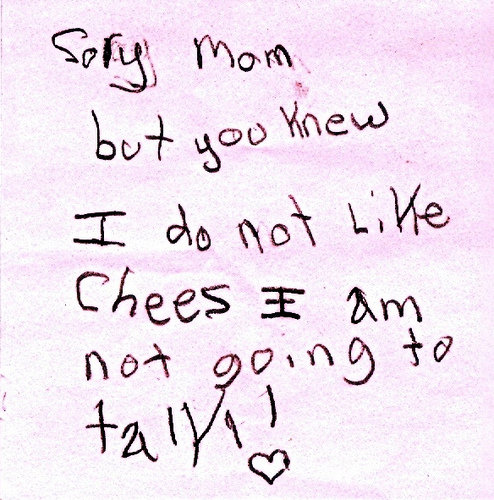 Sory Mom
but you knew
I do not Like
Chees I am
not going to
talk!